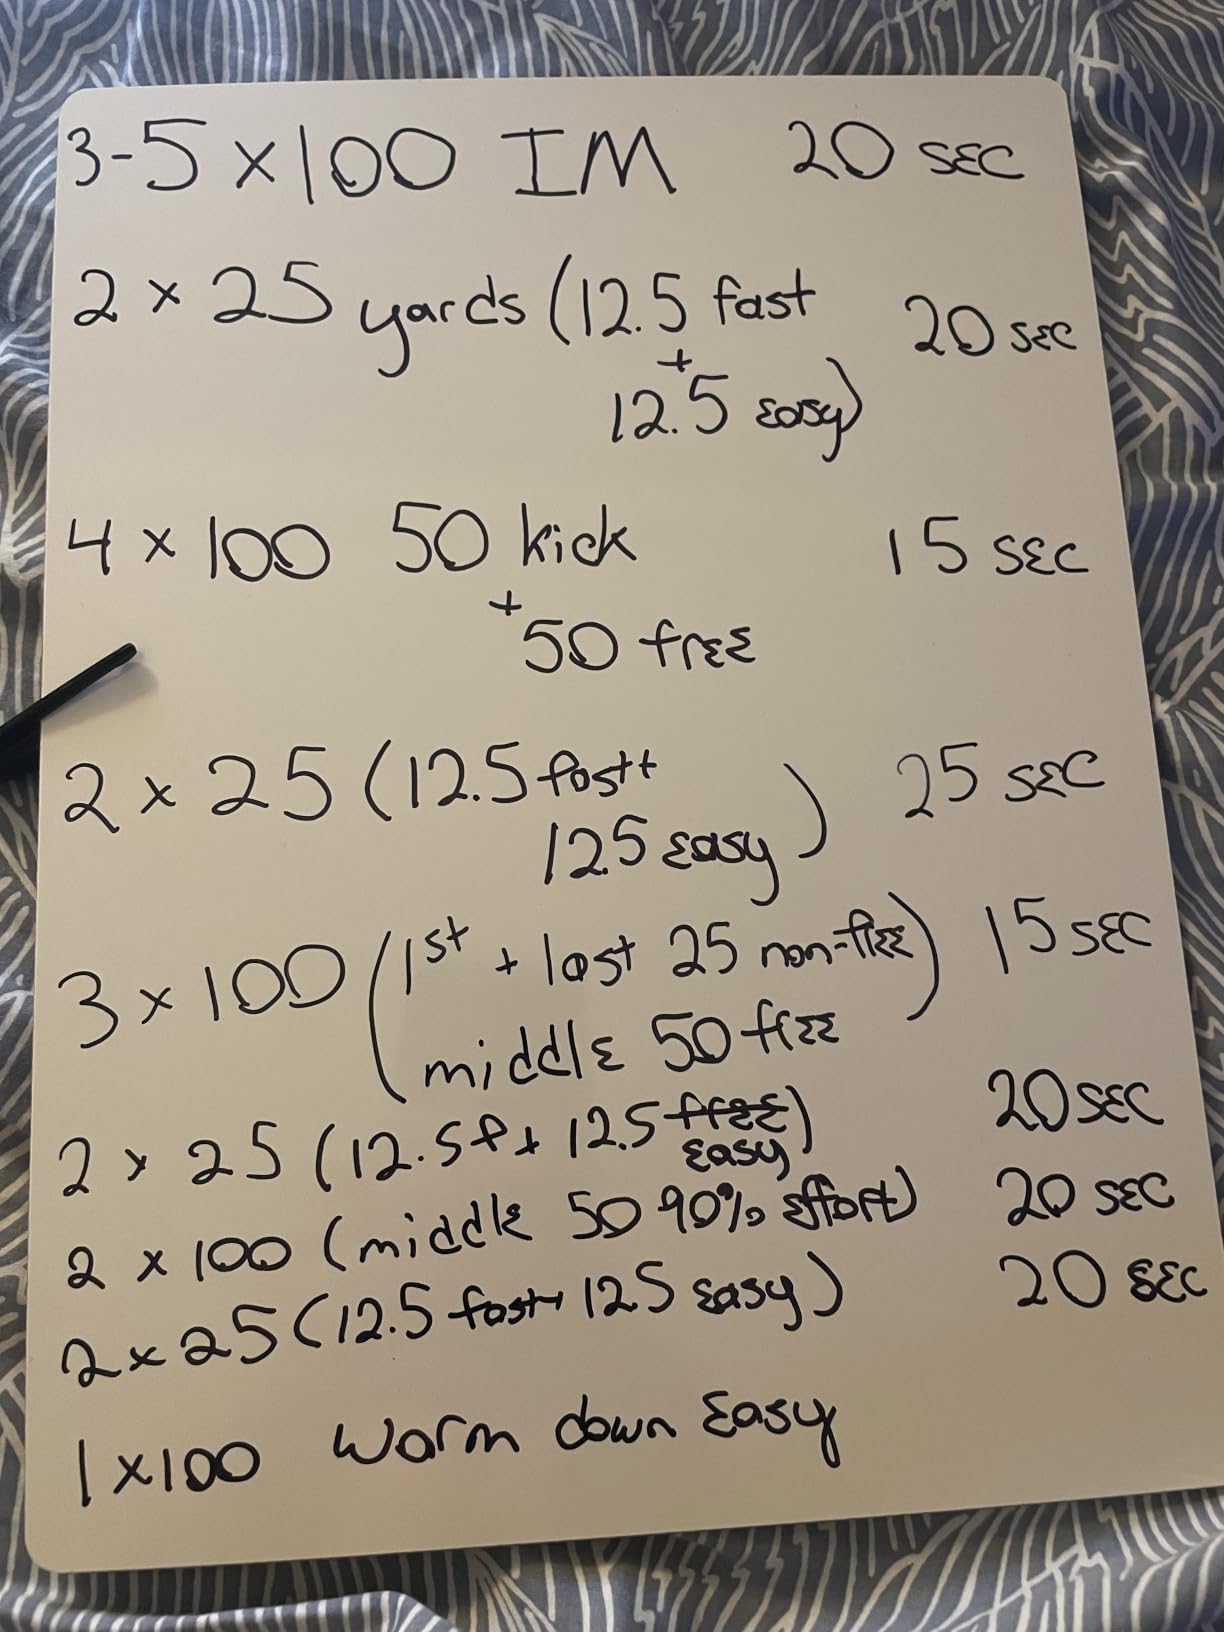 3-5 x 100 IM 20 sec
2 x 25 yards (12.5 fast 20 sec
+
12.5 easy)
4 x 100 50 kick 15 sec
+
50 free
2 x 25 (12.5 fast + 25 sec
12.5 easy)
3 x 100 (1st + last 25 non-free) 15 sec
middle 50 free
2 x 25 (12.5 f + 12.5 free) 20 sec
easy
2 x 100 (middle 50 90% effort) 20 sec
2 x 25 (12.5 fast + 12.5 easy) 20 sec
1 x 100 warm down easy